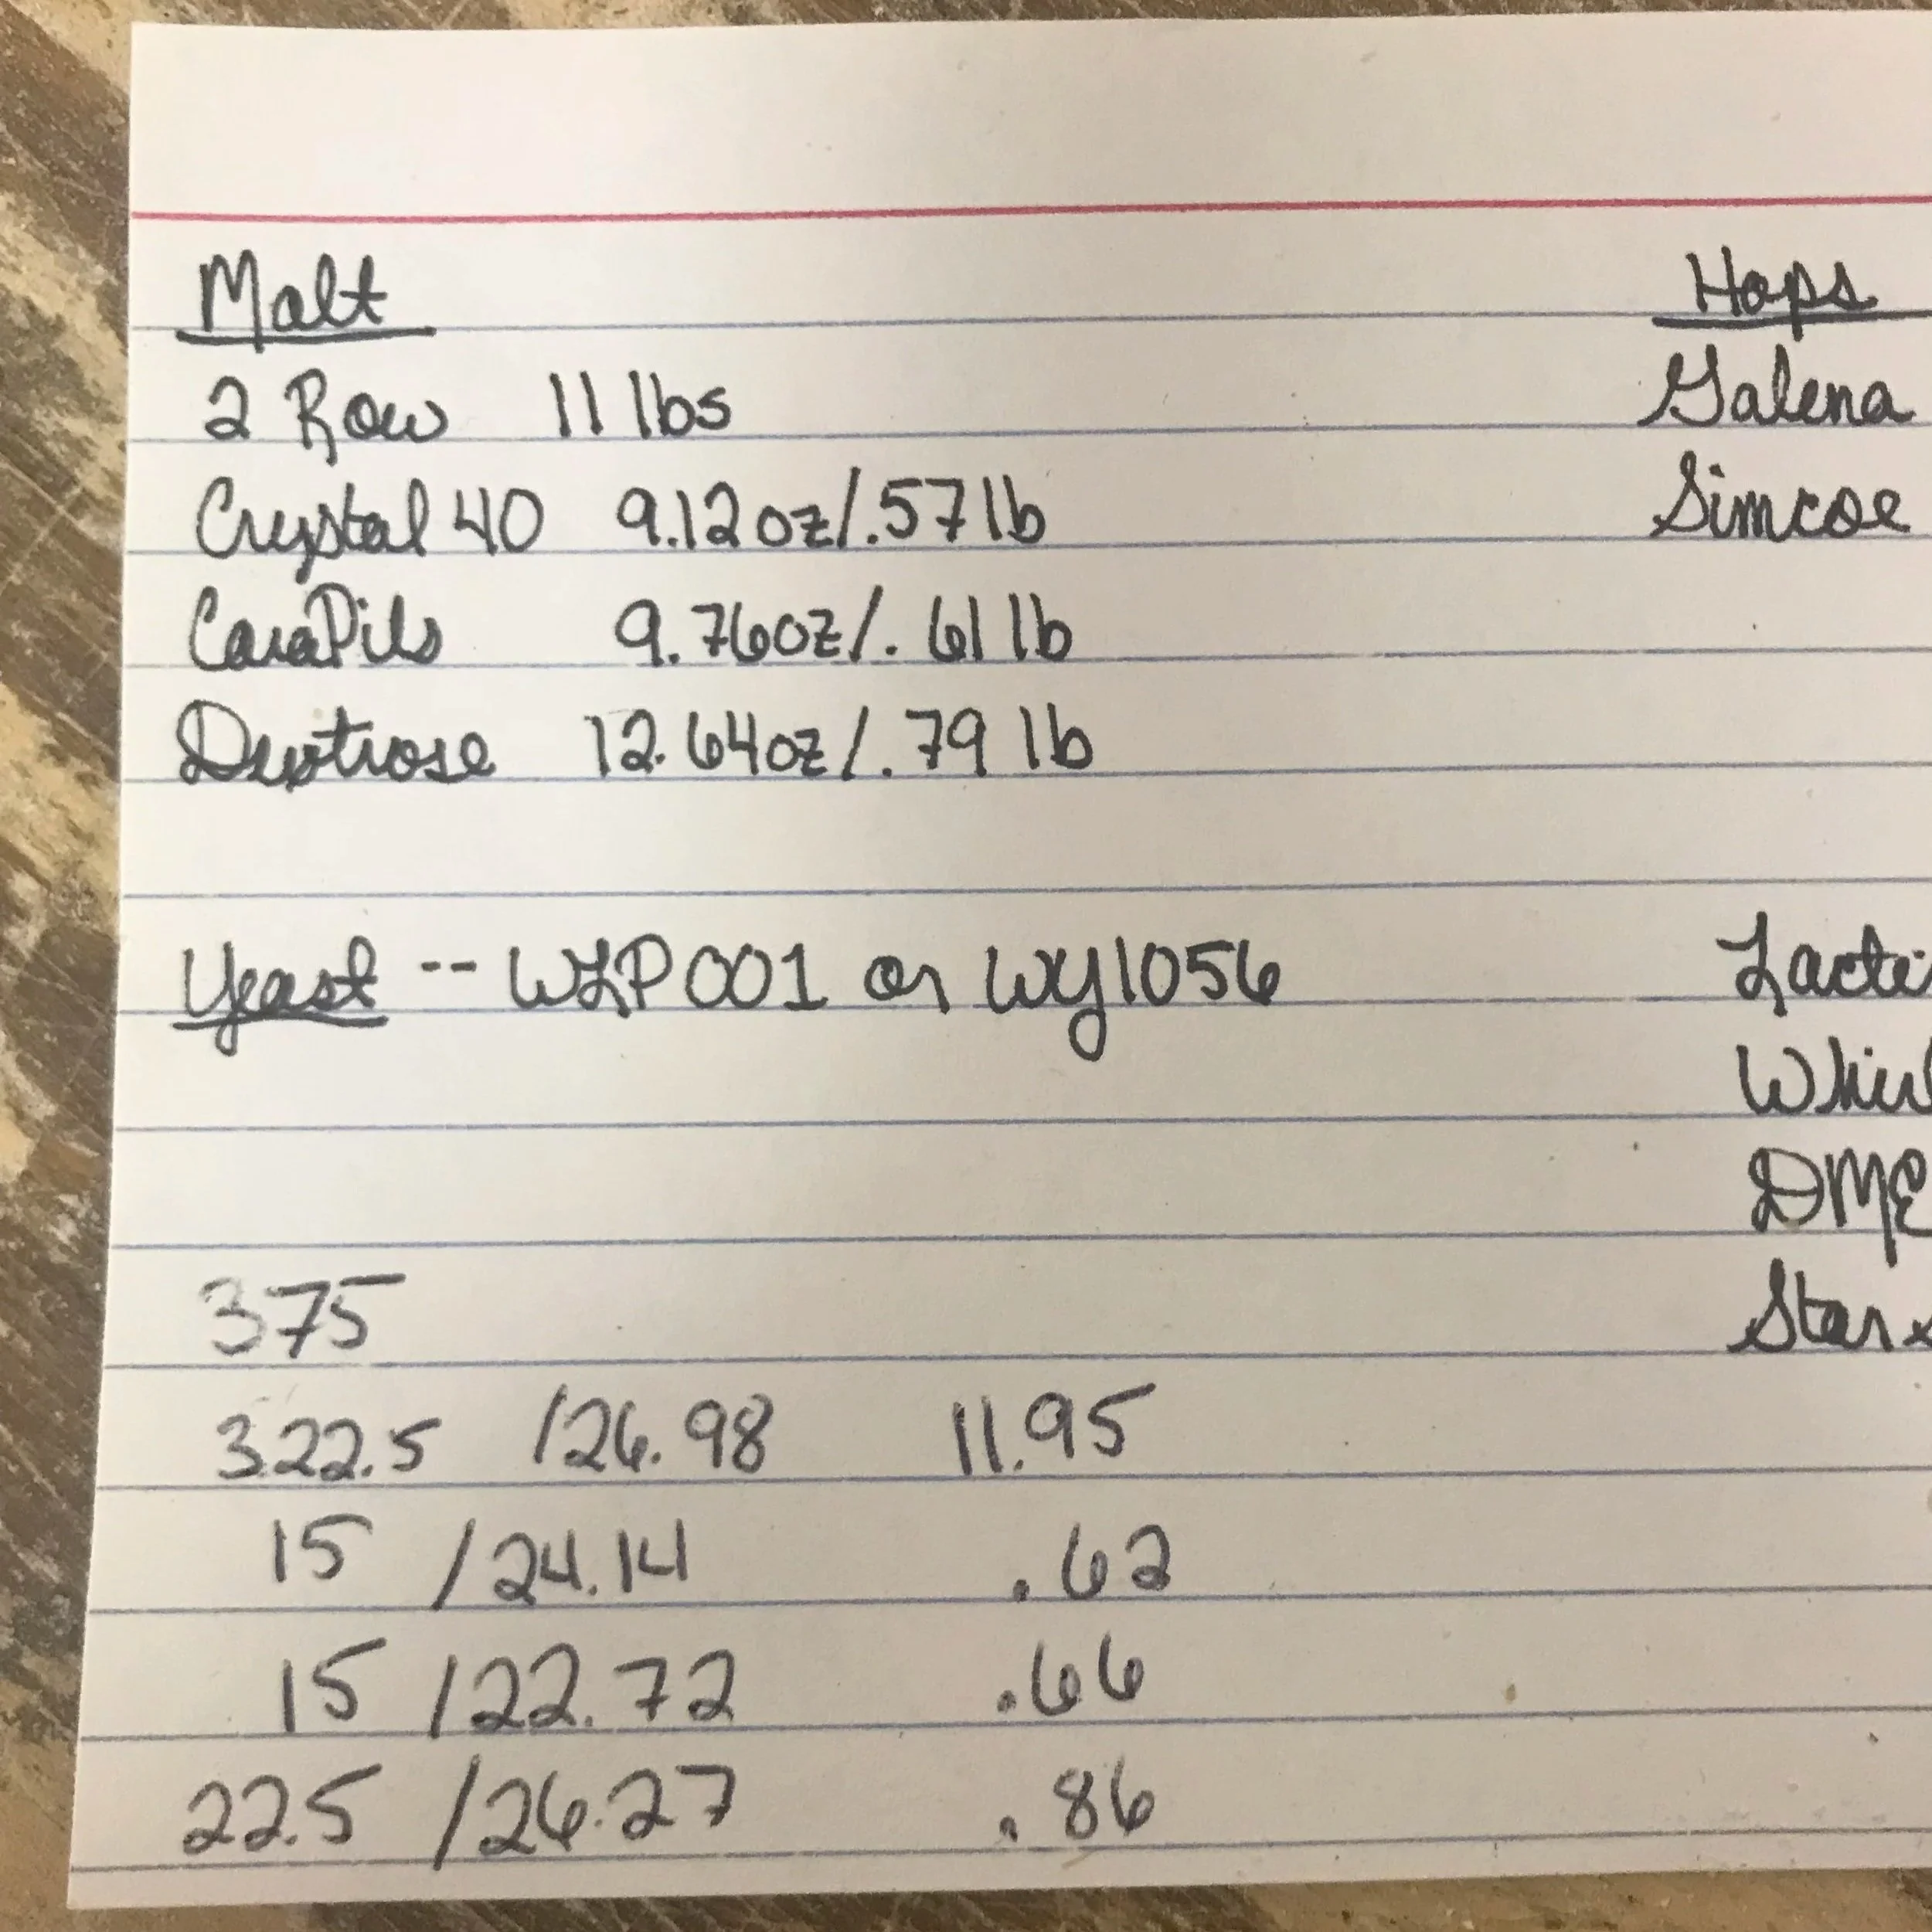 Malt Hops
2 Row 11 lbs Galena
Crystal 40 9.12oz/.57lb Simcoe
CaraPils 9.76oz/.61 lb
Dextrose 12.64oz/.79 lb
Yeast -- WLP001 or WY1056
DME
375
322.5 /26.98 11.95
15 /24.14 .62
15 /22.72 .66
22.5 /26.27 .86